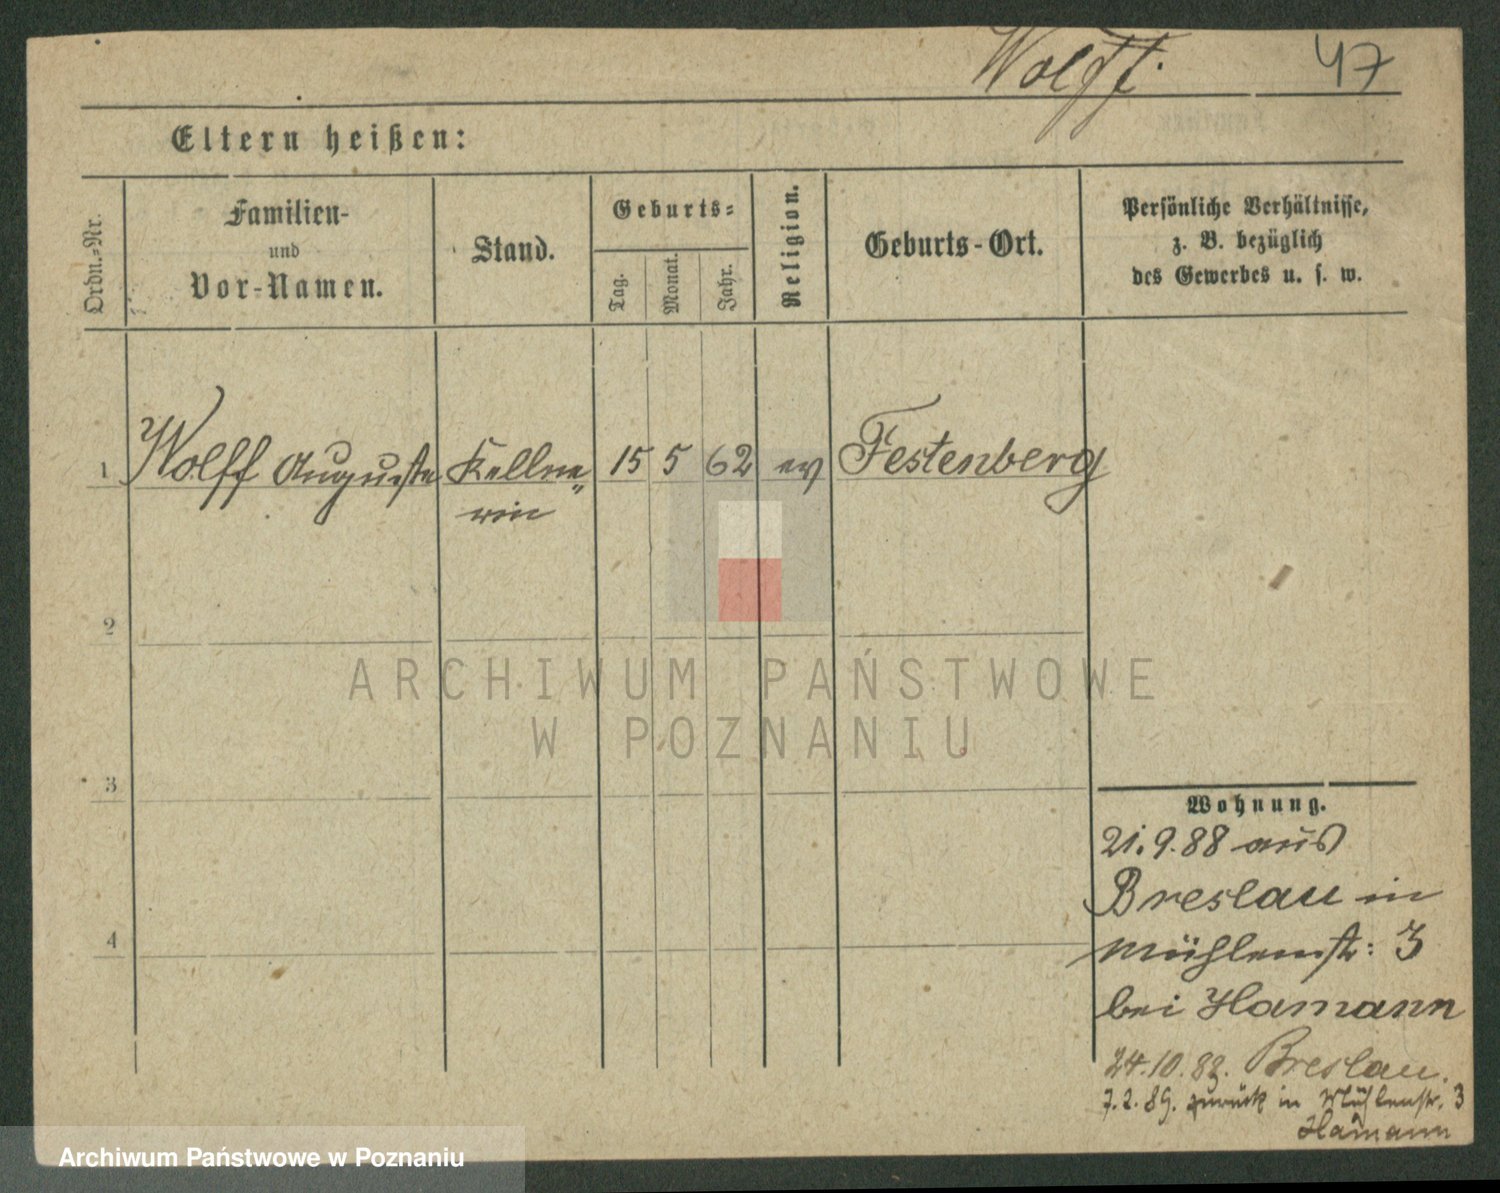 Wolff. 47
Eltern heißen:
Ordn.-Nr.
Familien-
und
Vor-Namen.
Stand.
Geburts-
Tag.
Monat.
Jahr.
Religion.
Geburts-Ort.
Persönliche Verhältnisse,
z. B. bezüglich
des Gewerbes u. s. w.
1 Wolff Auguste Kellne 15 5 62 ev Festenberg
rin
2
ARCHIWUM PAŃSTWOWE
W POZNANIU
3
4
Wohnung.
21.9.88 aus
Breslau in
Mühlenstr: 3
bei Hamann
24.10.88. Breslau.
7.2.89. zurück in Mühlenstr. 3
Hamann
Archiwum Państwowe w Poznaniu